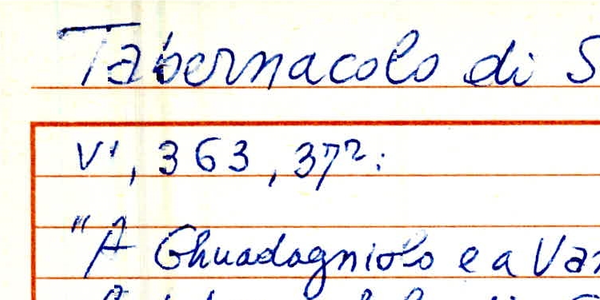 Tabernacolo di S
V', 363, 372:
"A Ghuadagniolo e a Van